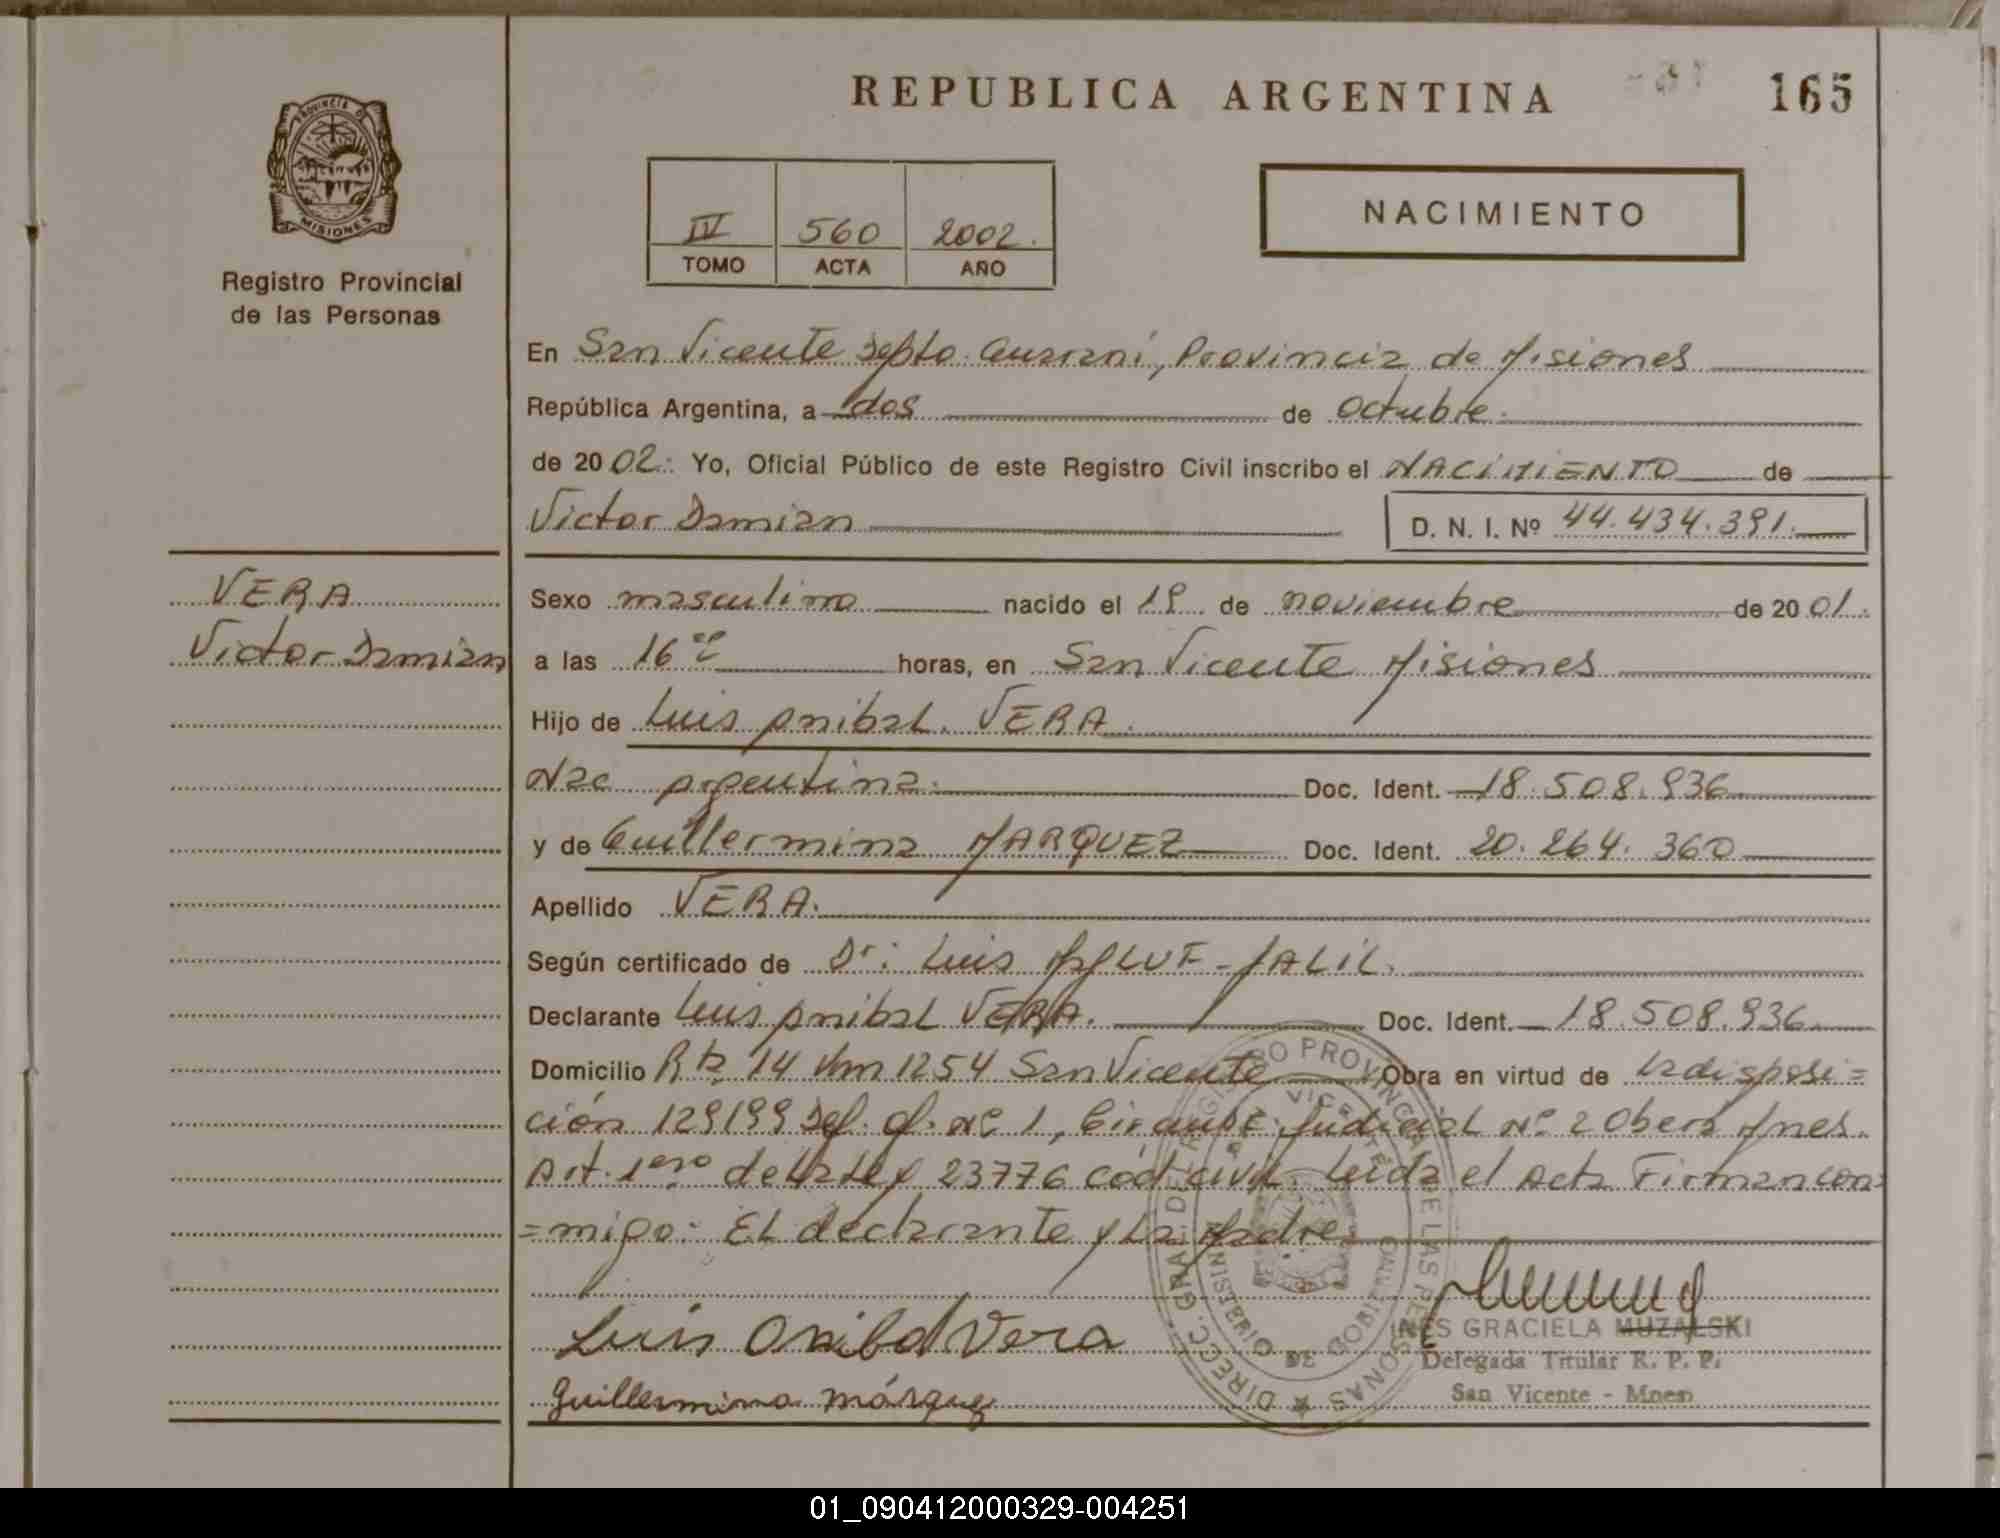 REPUBLICA ARGENTINA
165
PROVINCIA D
MISIONES
Registro Provincial
de las Personas
IV 560 2002.
TOMO ACTA AÑO
NACIMIENTO
En San Vicente Depto. Guaraní, Provincia de Misiones
República Argentina, a dos de Octubre.
de 2002. Yo, Oficial Público de este Registro Civil inscribo el NACIMIENTO de
Victor Damian D. N. I. Nº 44.434.391.
VERA
Victor Damian
Sexo masculino nacido el 19 de noviembre de 2001.
a las 16 horas, en San Vicente Misiones
Hijo de Luis Anibal. VERA.
Nac Argentina. Doc. Ident. 18.508.936
y de Guillermina MARQUEZ Doc. Ident. 20.264.360
Apellido VERA.
Según certificado de Dr: Luis JALIL.
Declarante Luis Anibal VERA. Doc. Ident. 18.508.936
Domicilio Rta. 14 Km 1254 San Vicente Obra en virtud de la disposi=
ción 129199 Def. of. Nº 1, Circunsc. Judicial Nº 2 Obera Mnes.
Art. 1ero de la Ley 23776 Cód. civil. Leida el Acta Firman con=
=migo: El declarante y La Madre
Luis Anibal Vera
Guillermina Márquez
DIRECC. GRAL. DEL REGISTRO PROVINCIAL DE LAS PERSONAS
MINISTERIO DE GOBIERNO
INES GRACIELA MUZALSKI
Delegada Titular R. P. P.
San Vicente - Mnes
01_090412000329-004251